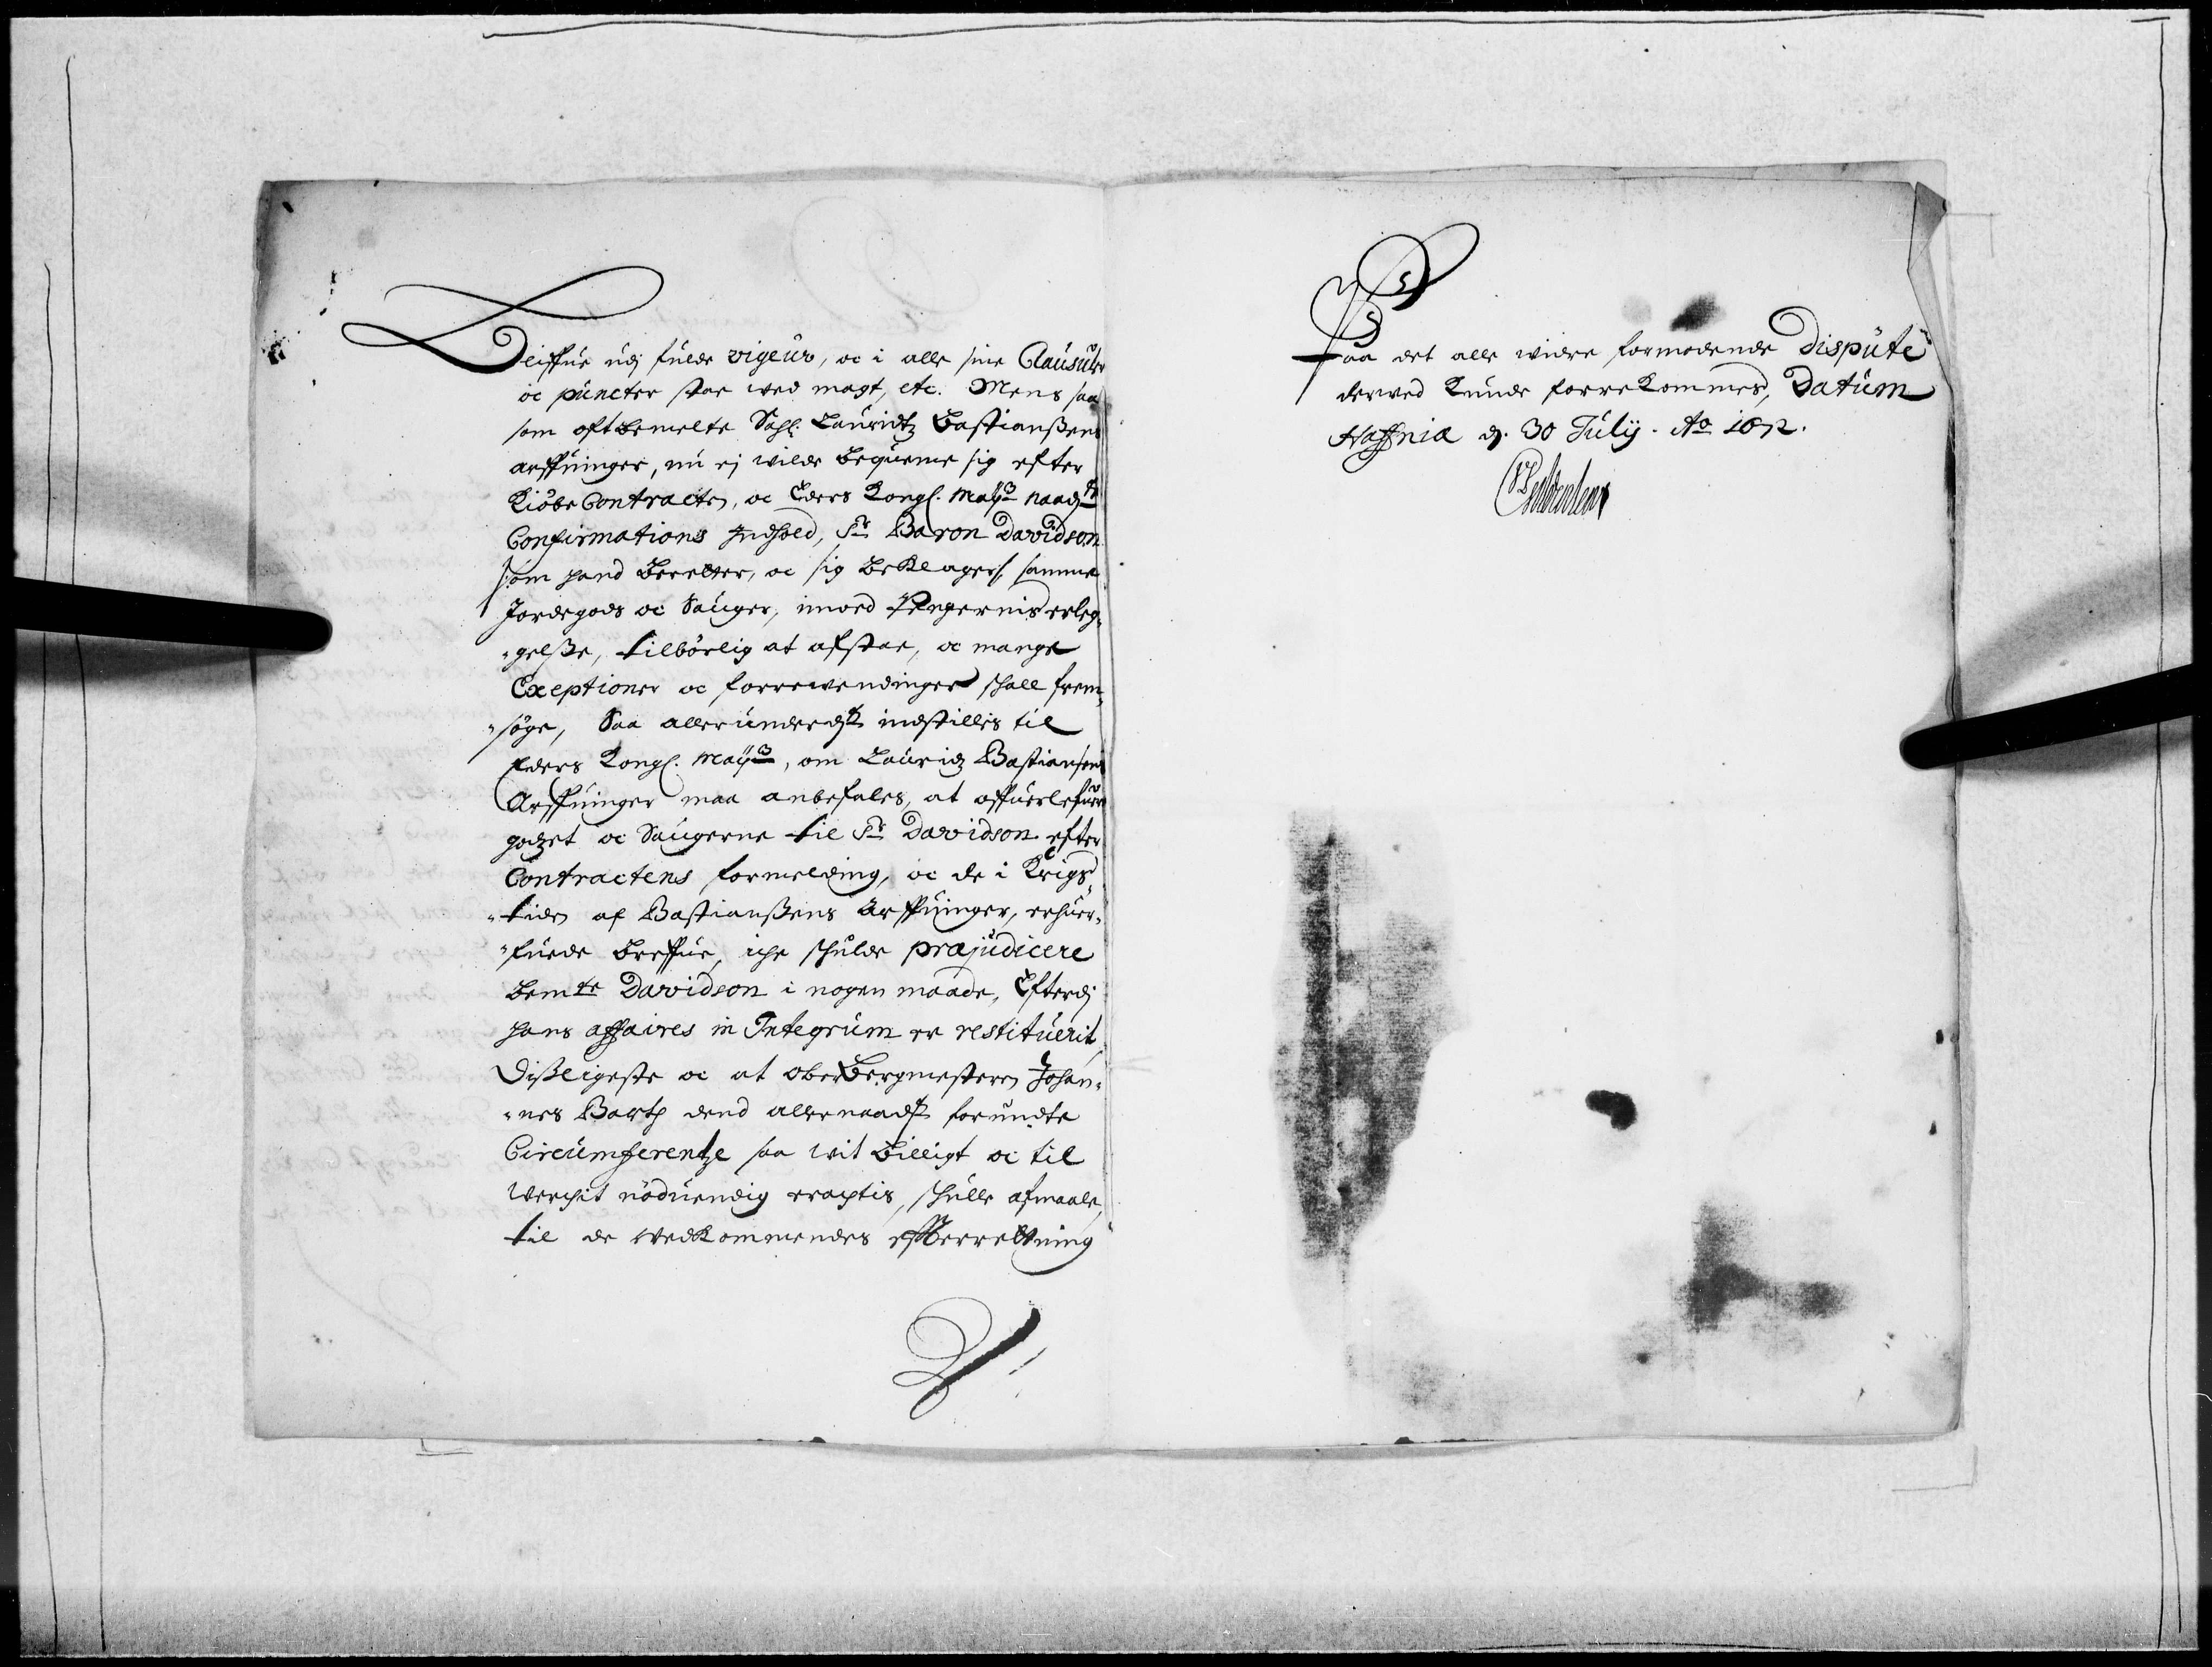 bliffue udj fulde vigeur, oc i alle sine Clausuler
oc puncter staa wed magt, etc. Mens saa
som oftbemelte Sahl: Lauridtz Bastianßens
arffuinger, nu ej wilde beqveme sig efter
Kiöbe Contracten, oc Eders Kongl. Maytz naadste
Confirmations Indhold, Sr Baron Davidson
som hand beretter, oc sig beklager, samme
Jordegods oc Sauger, imod Pengernis erleg¬
gelße, tilbörlig at afstaa, oc mange
Exeptioner oc forrewendinger skall frem¬
söge, Saa allerunderdst indstillis til
Eders Kongl. Maytz, om Lauridz Bastiansens
Arffuinger maa anbefales, at offuerlefuere
godzet oc Saugerne til Sr Davidson efter
Contractens formelding, oc de i Krigs
tiden af Bastianßens Arffuinger, erhuer¬
fuede breffue, iche skulde præjudicere
bemte Davidson i nogen maade, Efterdj
hans affaires in Integrum er restituerit
Dißligeste oc at OberBergmesteren Johan¬
nes Barth dend allernaadst forundte
Circumferentze saa wit billigt oc til
Werchit nöduendig eractis, skulle afmaale,
til de wedkommendes efterretning
Paa det alle widre formodende Dispute
derwed kunde forrekommes, Datum
Haffniæ d. 30 Julij. Ao 1672.